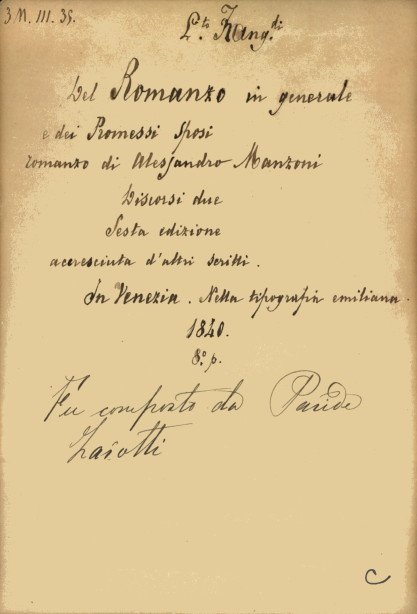 3 M. III. 35.
Del Romanzo in generale
e dei Promessi Sposi
romanzo di Alessandro Manzoni
Discorsi due
Sesta edizione
accresciuta d'altri scritti.
In Venezia. Nella tipografia emiliana.
1840.
8.° p.
Fu composto da Paride
Zaiotti
C